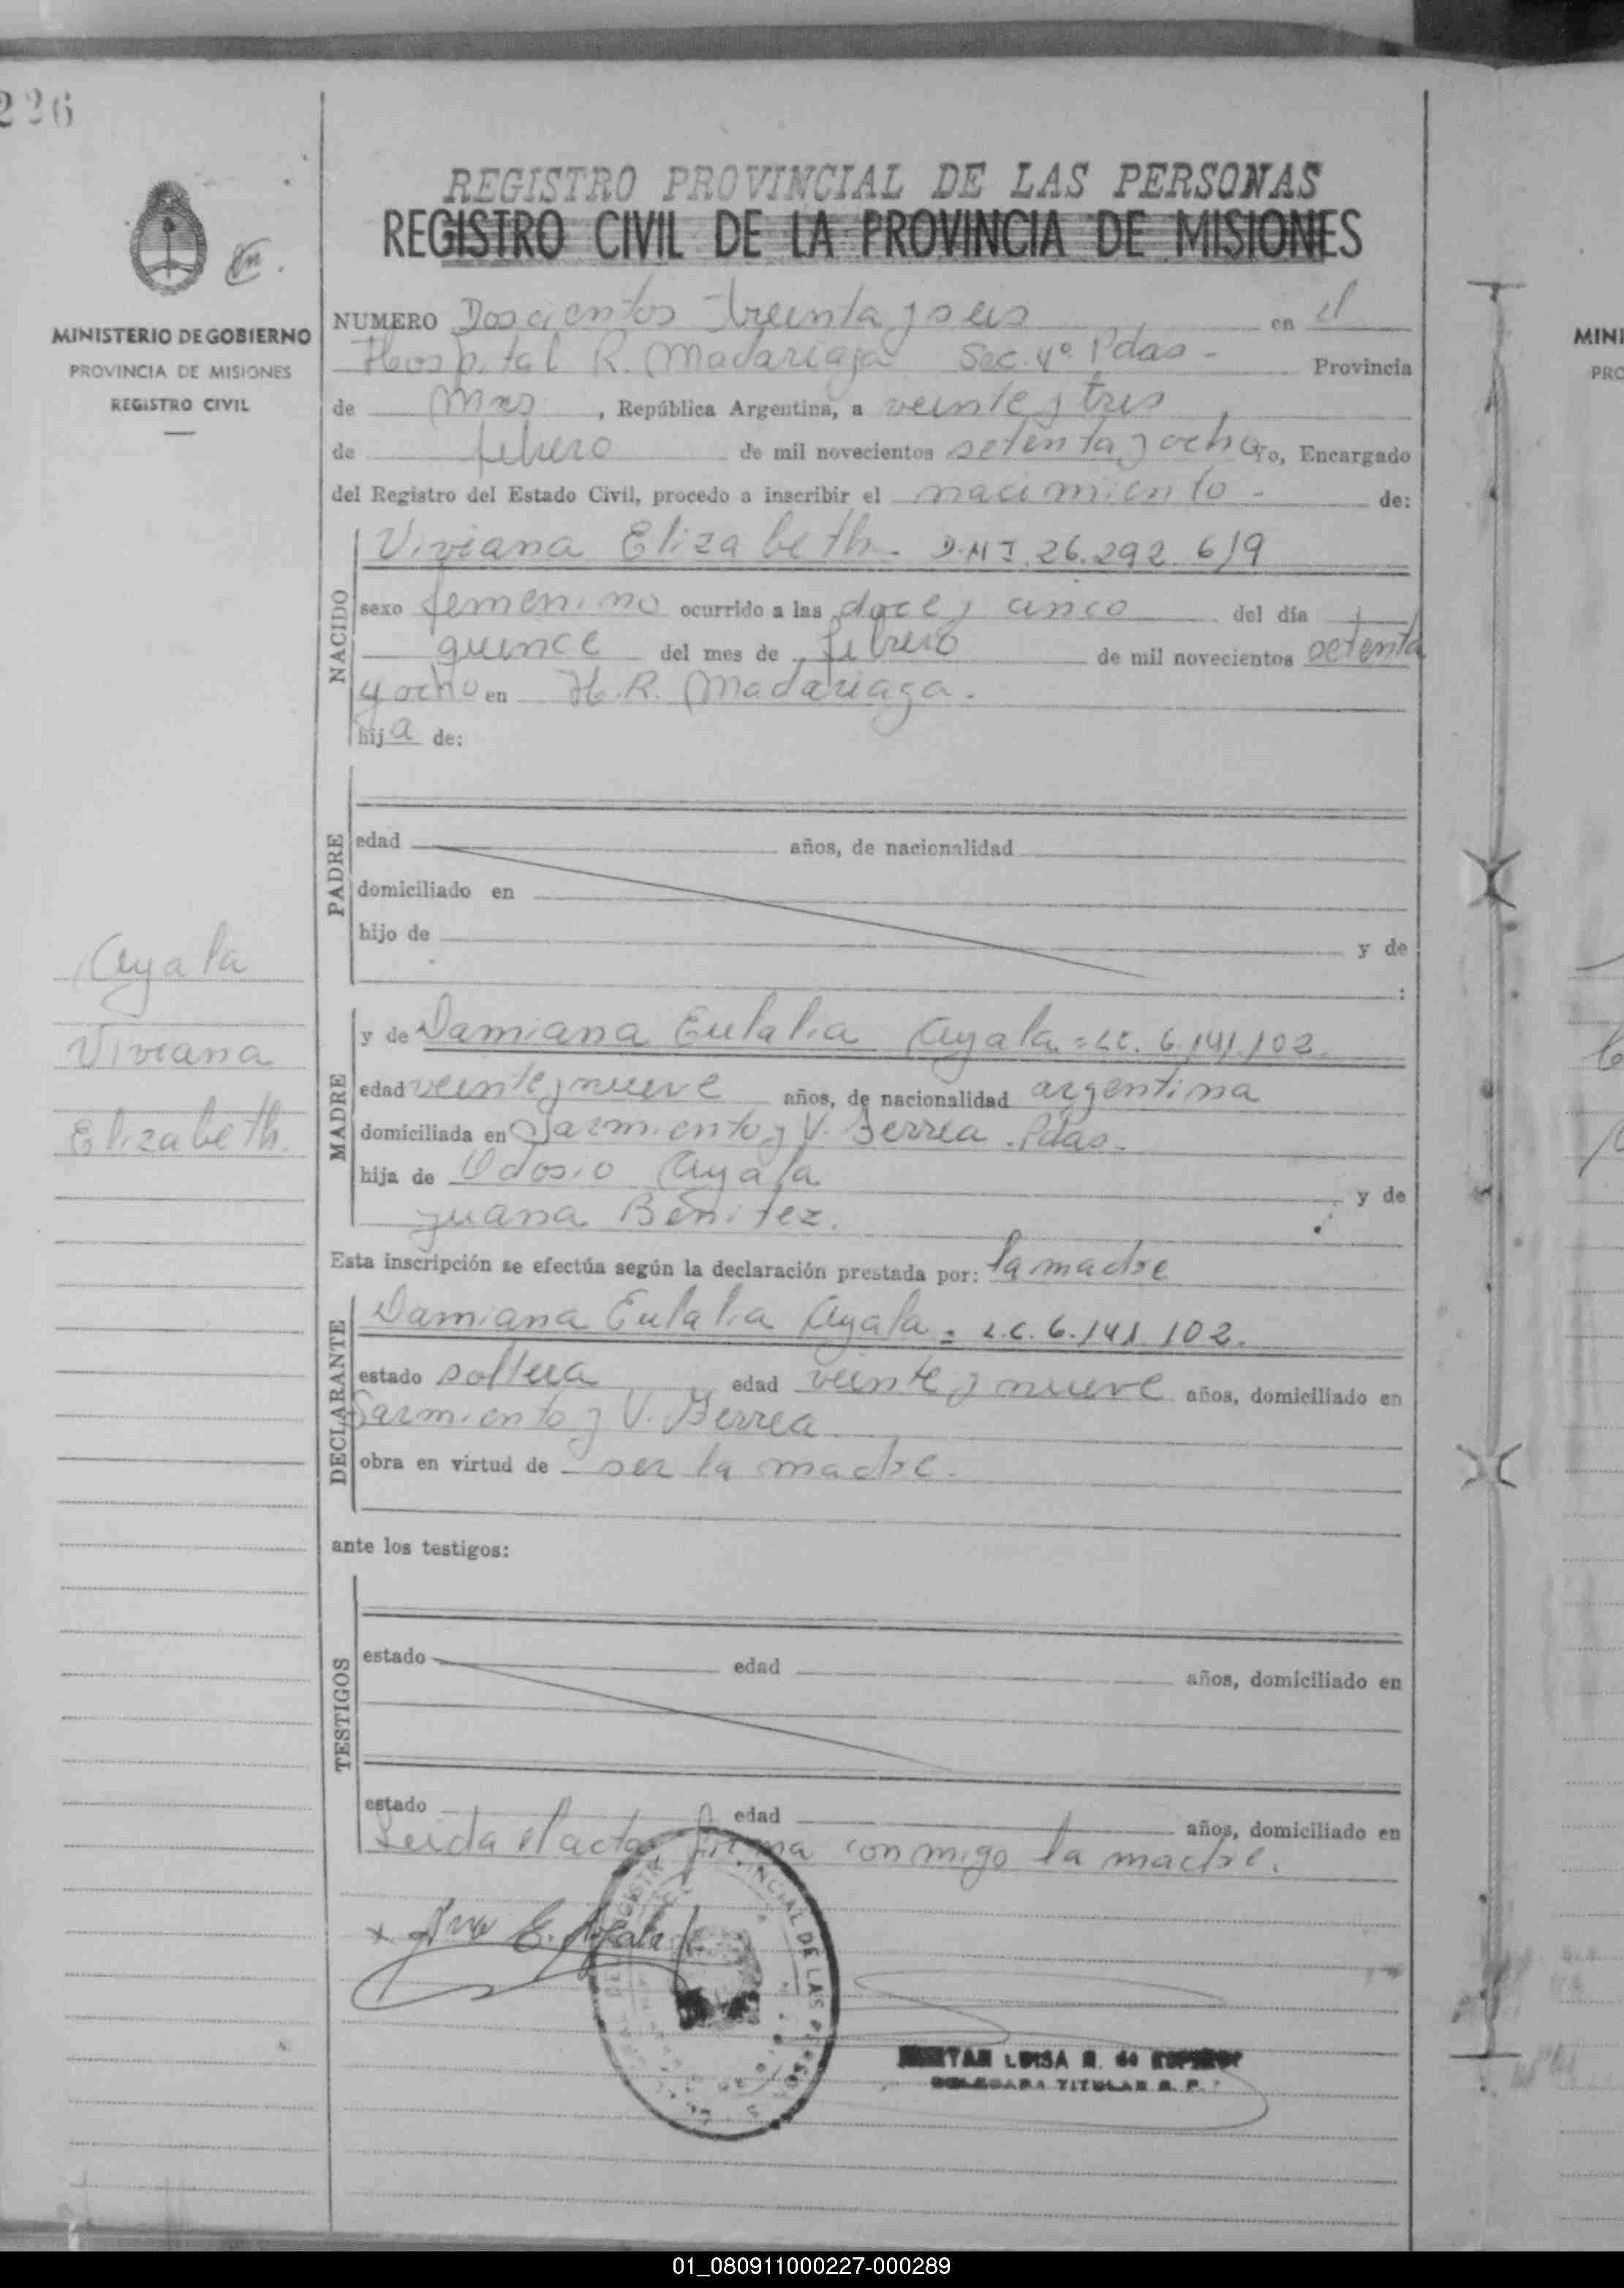 226
REGISTRO PROVINCIAL DE LAS PERSONAS
REGISTRO CIVIL DE LA PROVINCIA DE MISIONES
MINISTERIO DE GOBIERNO
PROVINCIA DE MISIONES
REGISTRO CIVIL
NUMERO Doscientos treinta y seis en el
Hospital R. Madariaga Sec. 4º Pdas - Provincia
de Mnes, República Argentina, a veinte y tres
de febrero de mil novecientos setenta y ocho Yo, Encargado
del Registro del Estado Civil, procedo a inscribir el nacimiento - de:
NACIDO
Viviana Elizabeth - D.N.I. 26.292.619
sexo femenino ocurrido a las doce y cinco del día
quince del mes de febrero de mil novecientos setenta
y ocho en H. R. Madariaga.
hija de:
PADRE
edad años, de nacionalidad
domiciliado en
hijo de y de
:
Ayala
Viviana
Elizabeth.
MADRE
y de Damiana Eulalia Ayala = L.C. 6.141.102.
edad veinte y nueve años, de nacionalidad argentina
domiciliada en Sarmiento y V. Ferrea. Pdas.
hija de Odosio Ayala y de
Juana Benitez.
Esta inscripción se efectúa según la declaración prestada por: la madre
DECLARANTE
Damiana Eulalia Ayala = L.C. 6.141.102.
estado soltera edad veinte y nueve años, domiciliado en
Sarmiento y V. Ferrea
obra en virtud de ser la madre.
ante los testigos:
TESTIGOS
estado edad años, domiciliado en
estado edad años, domiciliado en
Leida el acta firma conmigo la madre.
E. Ayala
LUISA
DELEGADA TITULAR R. P.
MINI
PRO
01_080911000227-000289